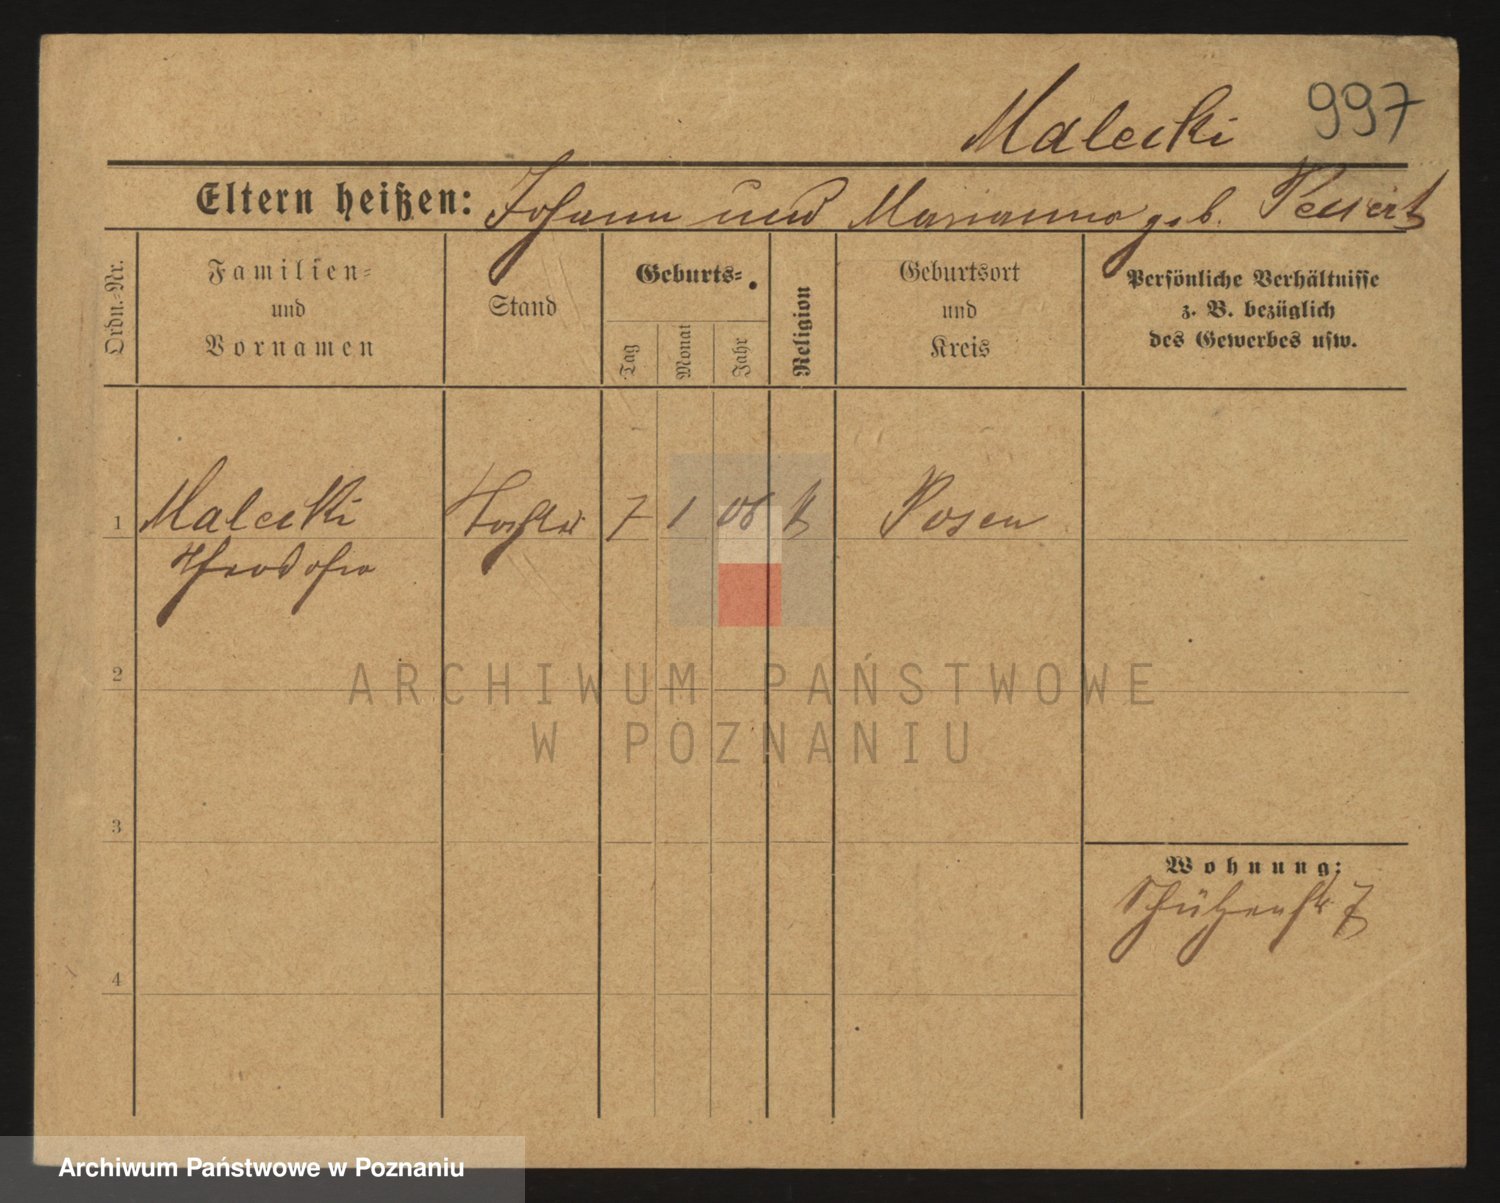 997
Malecki
Eltern heißen: Johann und Marianna geb.
Ordn.=Nr.
Familien=
und
Vornamen
Stand
Geburts=
Tag
Monat
Jahr
Religion
Geburtsort
und
Kreis
Persönliche Verhältnisse
z. B. bezüglich
des Gewerbes usw.
1 Malecki Tochter 7 1 06 k Posen
Theodosia
2
3
4
Wohnung:
Schützenstr 7
ARCHIWUM PAŃSTWOWE
W POZNANIU
Archiwum Państwowe w Poznaniu